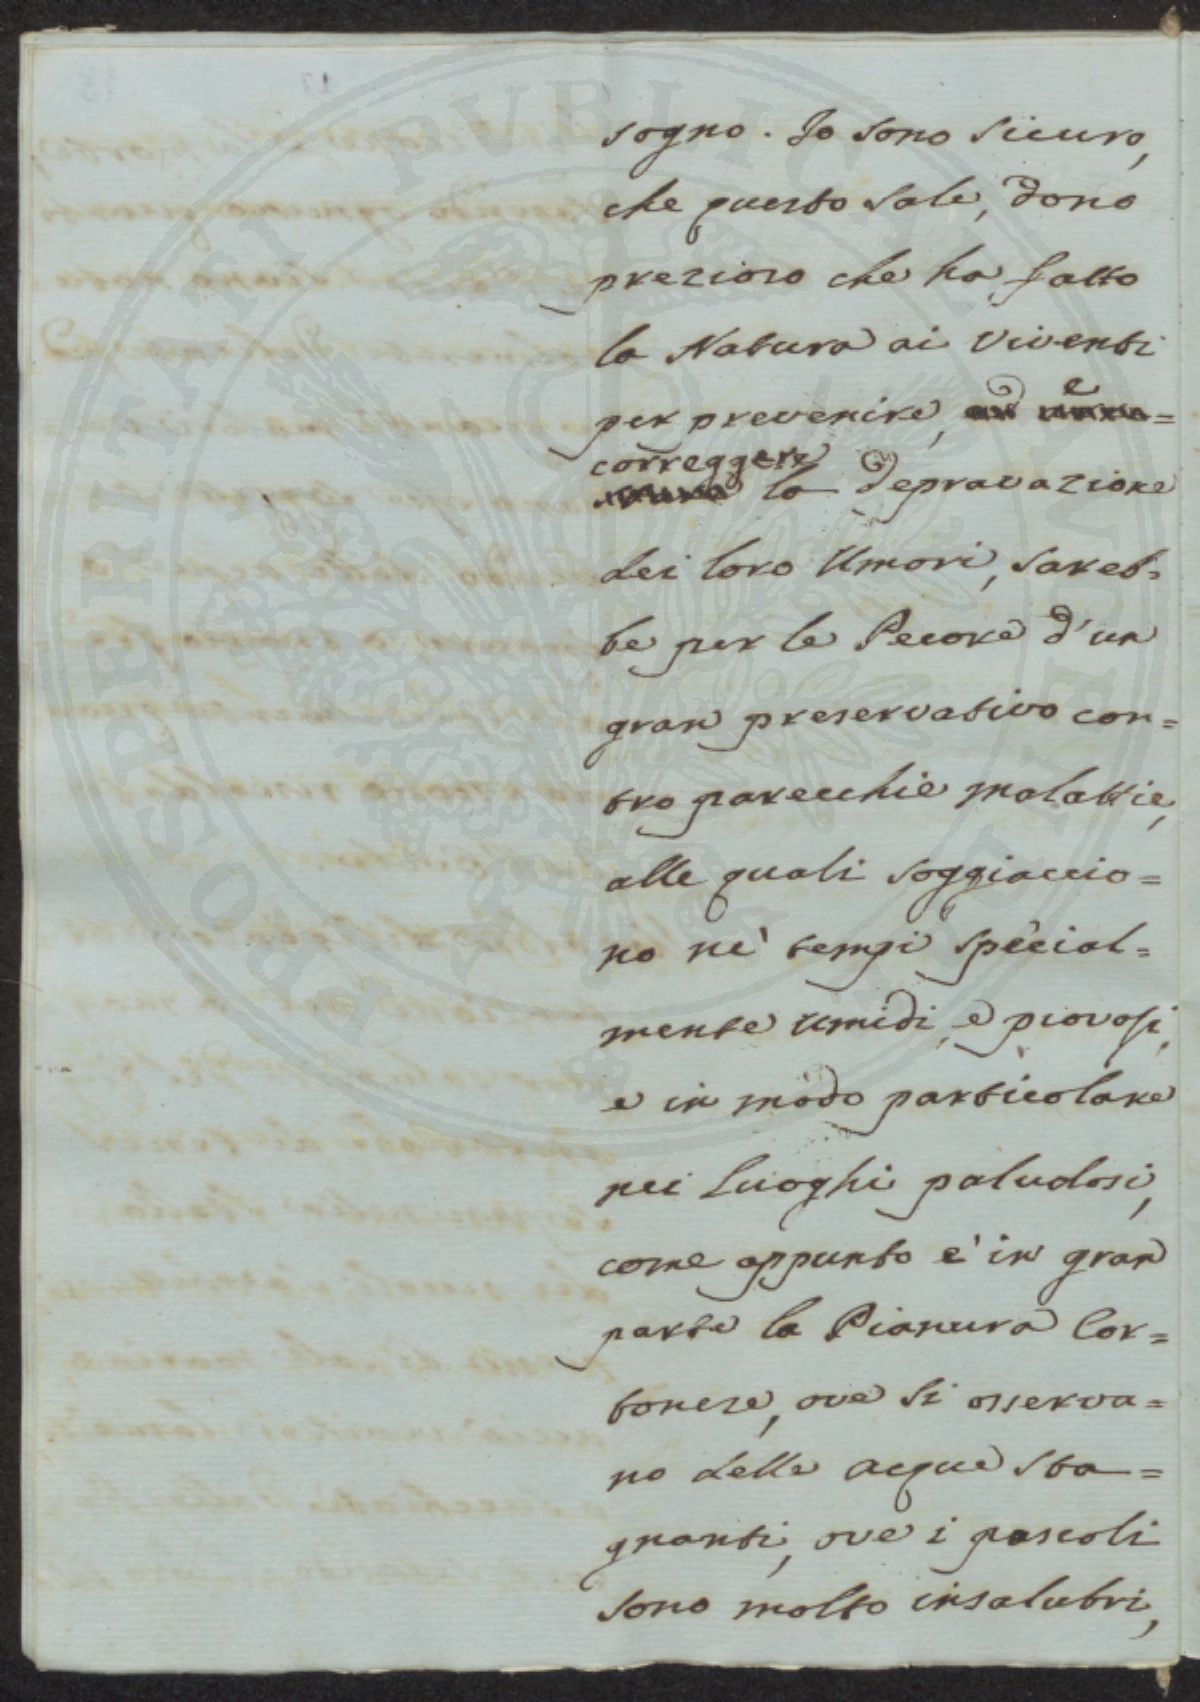 sogno. Io sono sicuro,
che questo sale, dono
prezioso che ha fatto
la Natura ai viventi
per prevenire, e
correggere la depravazione
dei loro Umori, sareb=
be per le Pecore d'un
gran preservativo con=
tro parecchie malattie,
alle quali soggiaccio=
no ne' tempi special=
mente umidi, e piovosi,
e in modo particolare
nei luoghi paludosi,
come appunto è in gran
parte la Pianura Cor=
tonese, ove si osserva=
no delle acque sta=
gnanti, ove i pascoli
sono molto insalubri,
PROSPERITATI PVBLICAE